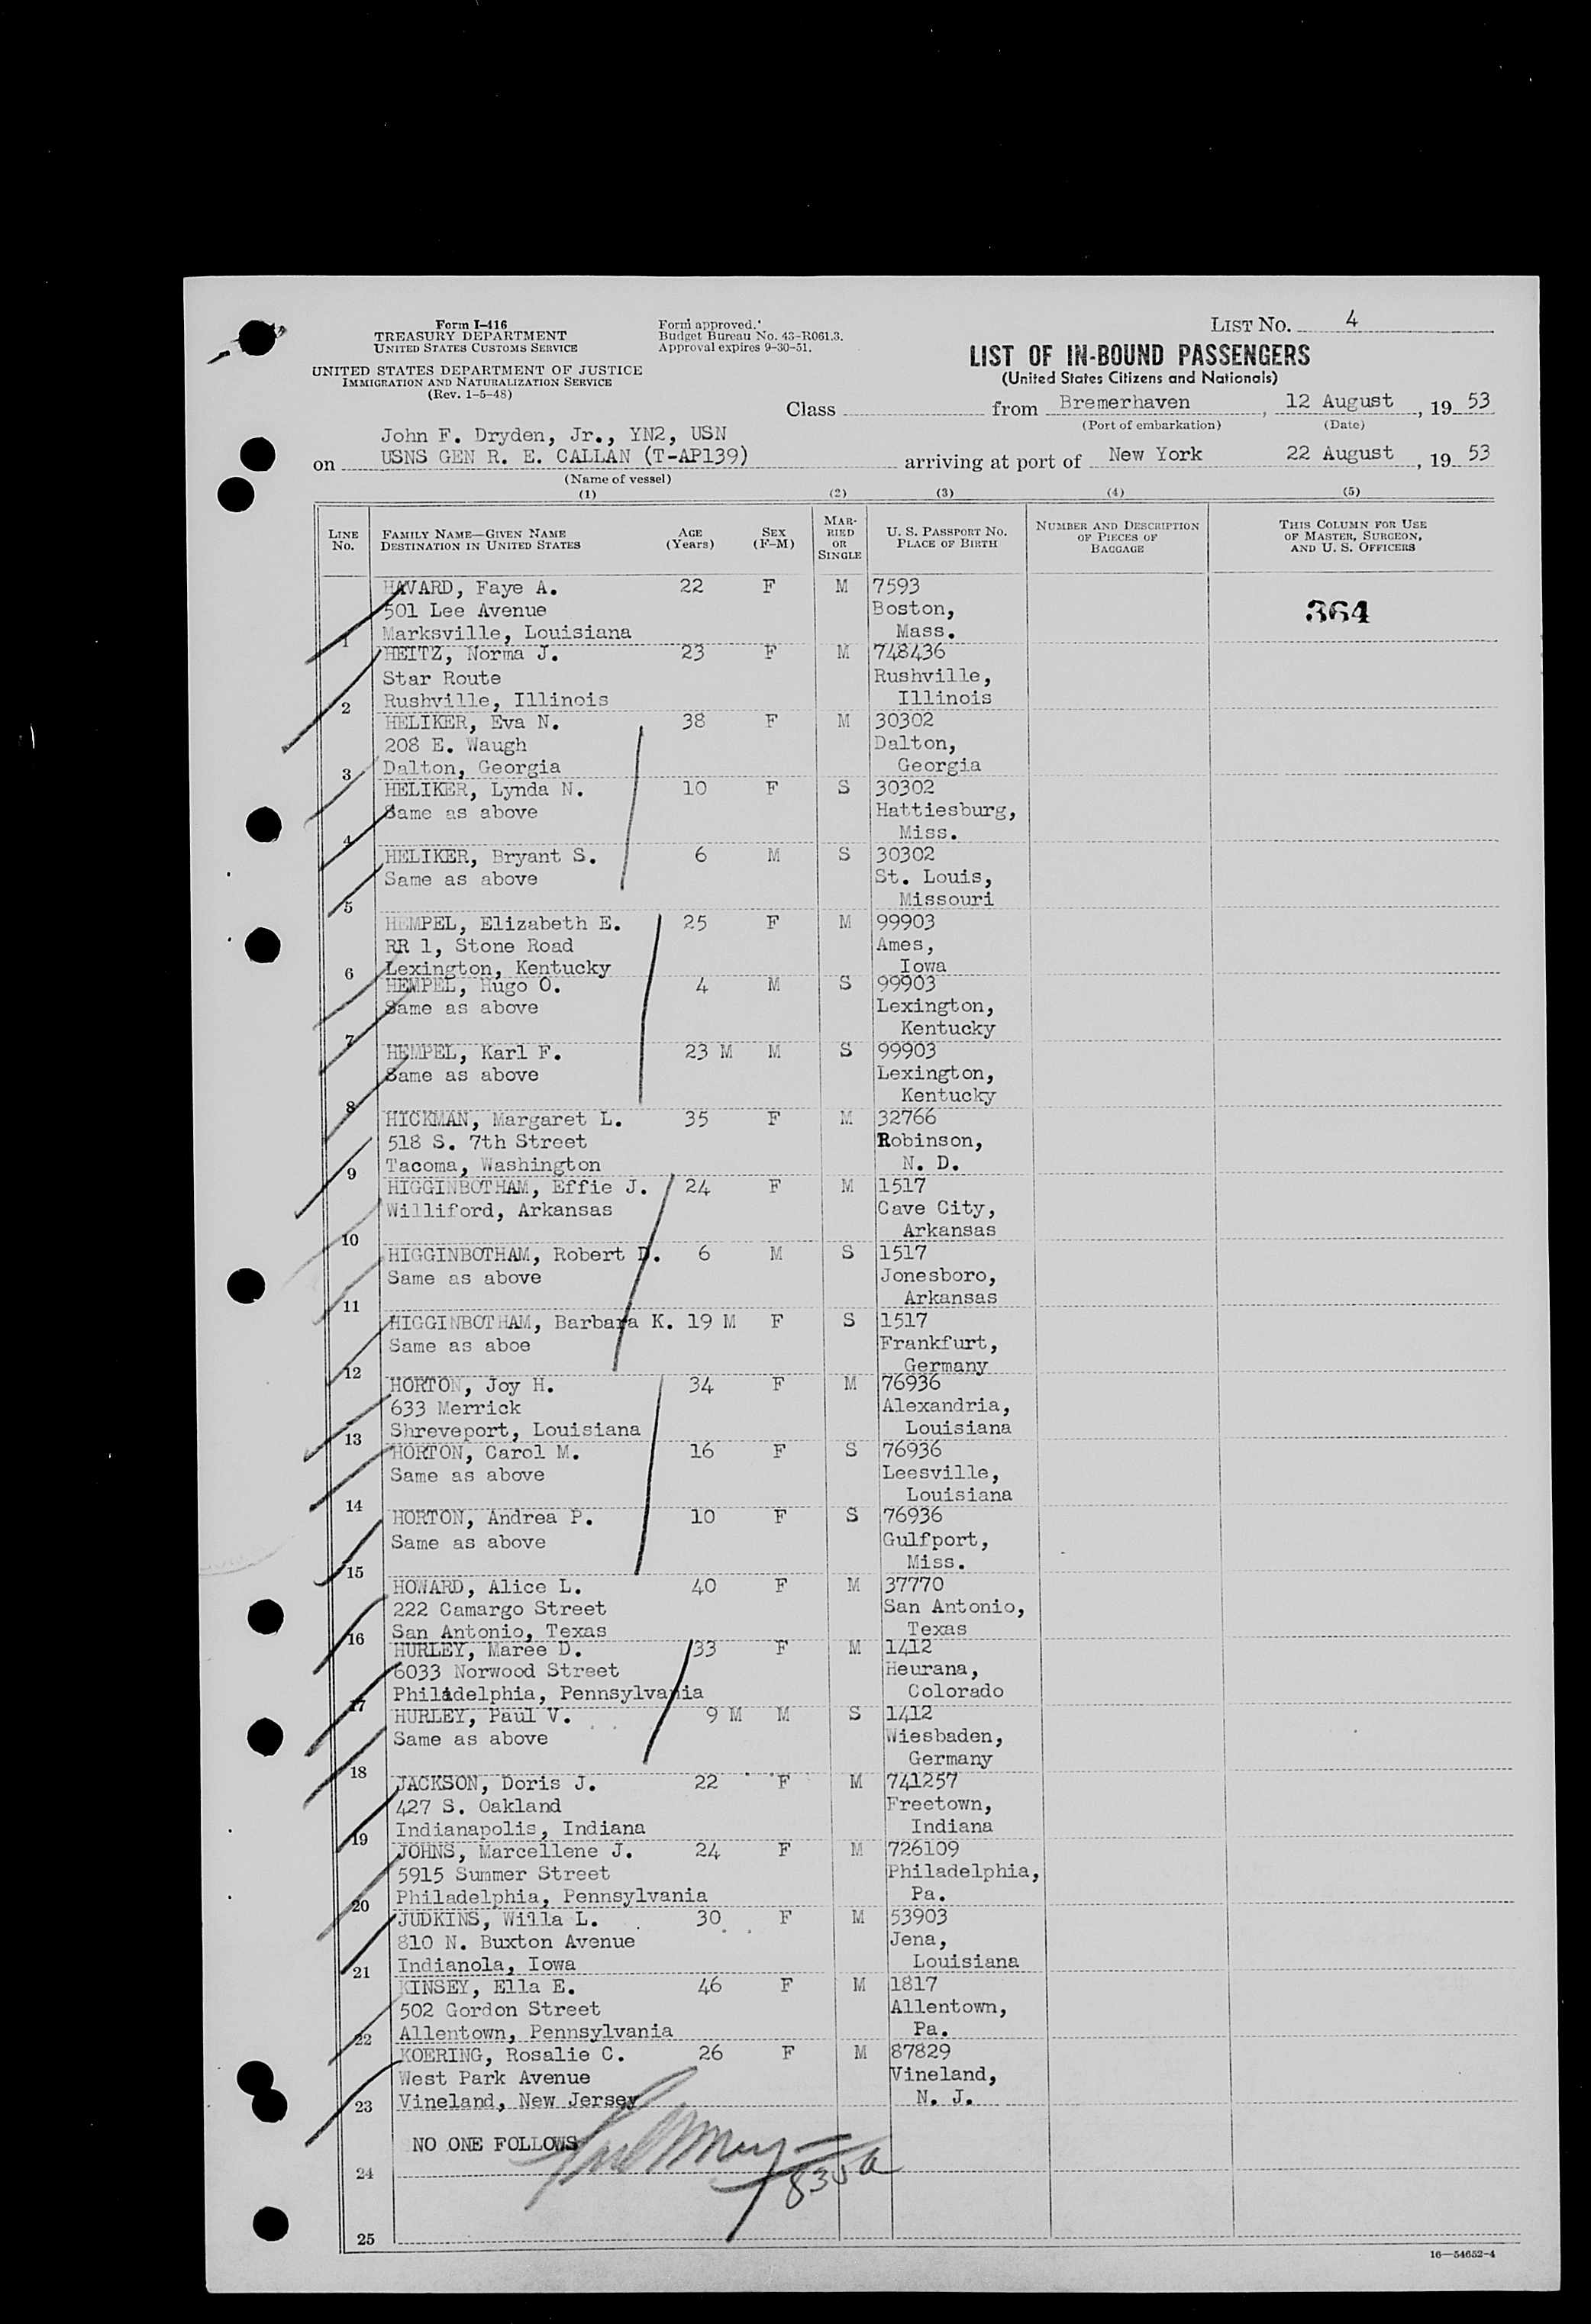 LIST No. 4
Form I-416
TREASURY DEPARTMENT
UNITED STATES CUSTOMS SERVICE
UNITED STATES DEPARTMENT OF JUSTICE
IMMIGRATION AND NATURALIZATION SERVICE
(Rev. 1-5-48)
Form approved.
Budget Bureau No. 43-R061.3.
Approval expires 9-30-51.
LIST OF IN-BOUND PASSENGERS
(United States Citizens and Nationals)
Class from Bremerhaven, 12 August, 19 53
(Port of embarkation) (Date)
John F. Dryden, Jr., YN2, USN
on USNS GEN R. E. CALLAN (T-AP139) arriving at port of New York 22 August, 19 53
(Name of vessel)
(1) (2) (3) (4) (5)
LINE No. FAMILY NAME—GIVEN NAME DESTINATION IN UNITED STATES AGE (Years) SEX (F-M) MARRIED OR SINGLE U. S. PASSPORT No. PLACE OF BIRTH NUMBER AND DESCRIPTION OF PIECES OF BAGGAGE THIS COLUMN FOR USE OF MASTER, SURGEON, AND U. S. OFFICERS
HAVARD, Faye A. 22 F M 7593
501 Lee Avenue Boston, 364
1 Marksville, Louisiana Mass.
HEITZ, Norma J. 23 F M 748436
Star Route Rushville,
2 Rushville, Illinois Illinois
HELIKER, Eva N. 38 F M 30302
208 E. Waugh Dalton,
3 Dalton, Georgia Georgia
HELIKER, Lynda N. 10 F S 30302
Same as above Hattiesburg,
4 Miss.
HELIKER, Bryant S. 6 M S 30302
Same as above St. Louis,
5 Missouri
HEMPEL, Elizabeth E. 25 F M 99903
RR 1, Stone Road Ames,
6 Lexington, Kentucky Iowa
HEMPEL, Hugo O. 4 M S 99903
Same as above Lexington,
7 Kentucky
HEMPEL, Karl F. 23 M M S 99903
Same as above Lexington,
8 Kentucky
HICKMAN, Margaret L. 35 F M 32766
518 S. 7th Street Robinson,
9 Tacoma, Washington N. D.
HIGGINBOTHAM, Effie J. 24 F M 1517
Williford, Arkansas Cave City,
10 Arkansas
HIGGINBOTHAM, Robert D. 6 M S 1517
Same as above Jonesboro,
11 Arkansas
HIGGINBOTHAM, Barbara K. 19 M F S 1517
Same as aboe Frankfurt,
12 Germany
HORTON, Joy H. 34 F M 76936
633 Merrick Alexandria,
13 Shreveport, Louisiana Louisiana
HORTON, Carol M. 16 F S 76936
Same as above Leesville,
14 Louisiana
HORTON, Andrea P. 10 F S 76936
Same as above Gulfport,
15 Miss.
HOWARD, Alice L. 40 F M 37770
222 Camargo Street San Antonio,
16 San Antonio, Texas Texas
HURLEY, Maree D. 33 F M 1412
6033 Norwood Street Heurana,
17 Philadelphia, Pennsylvania Colorado
HURLEY, Paul V. 9 M M S 1412
Same as above Wiesbaden,
18 Germany
JACKSON, Doris J. 22 F M 741257
427 S. Oakland Freetown,
19 Indianapolis, Indiana Indiana
JOHNS, Marcellene J. 24 F M 726109
5915 Summer Street Philadelphia,
20 Philadelphia, Pennsylvania Pa.
JUDKINS, Willa L. 30 F M 53903
810 N. Buxton Avenue Jena,
21 Indianola, Iowa Louisiana
KINSEY, Ella E. 46 F M 1817
502 Gordon Street Allentown,
22 Allentown, Pennsylvania Pa.
KOERING, Rosalie C. 26 F M 87829
West Park Avenue Vineland,
23 Vineland, New Jersey N. J.
NO ONE FOLLOWS
24
25
16—54652-4